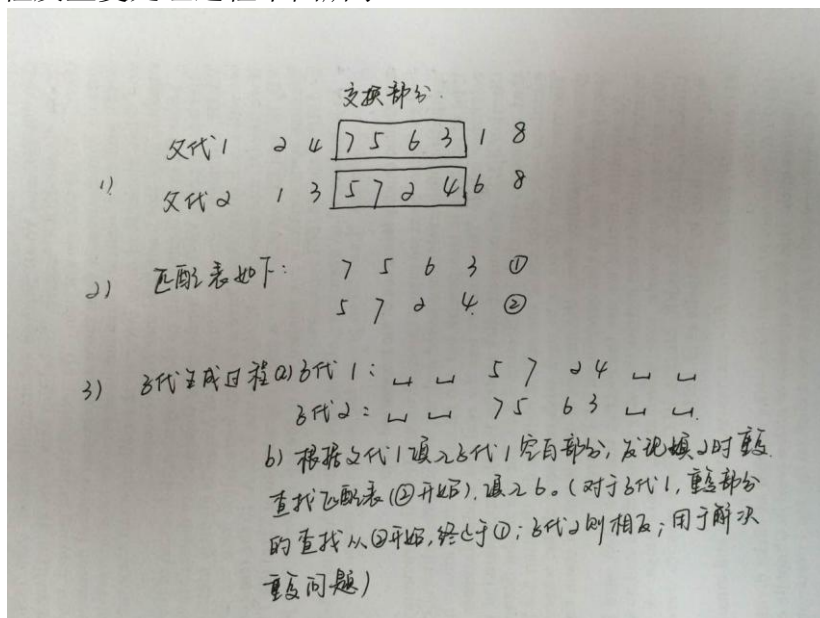 交换部分.
父代1 2 4 7 5 6 3 1 8
1)
父代2 1 3 5 7 2 4 6 8
2) 匹配表如下: 7 5 6 3 ①
5 7 2 4. ②
3) 子代生成过程(a)子代1: ␣ ␣ 5 7 2 4 ␣ ␣
子代2: ␣ ␣ 7 5 6 3 ␣ ␣.
b) 根据父代1填入子代1空白部分, 发现填2时重复.
查找匹配表(②开始), 填入6。(对于子代1, 重复部分
的查找从②开始, 终止于①; 子代2则相反; 用于解决
重复问题)